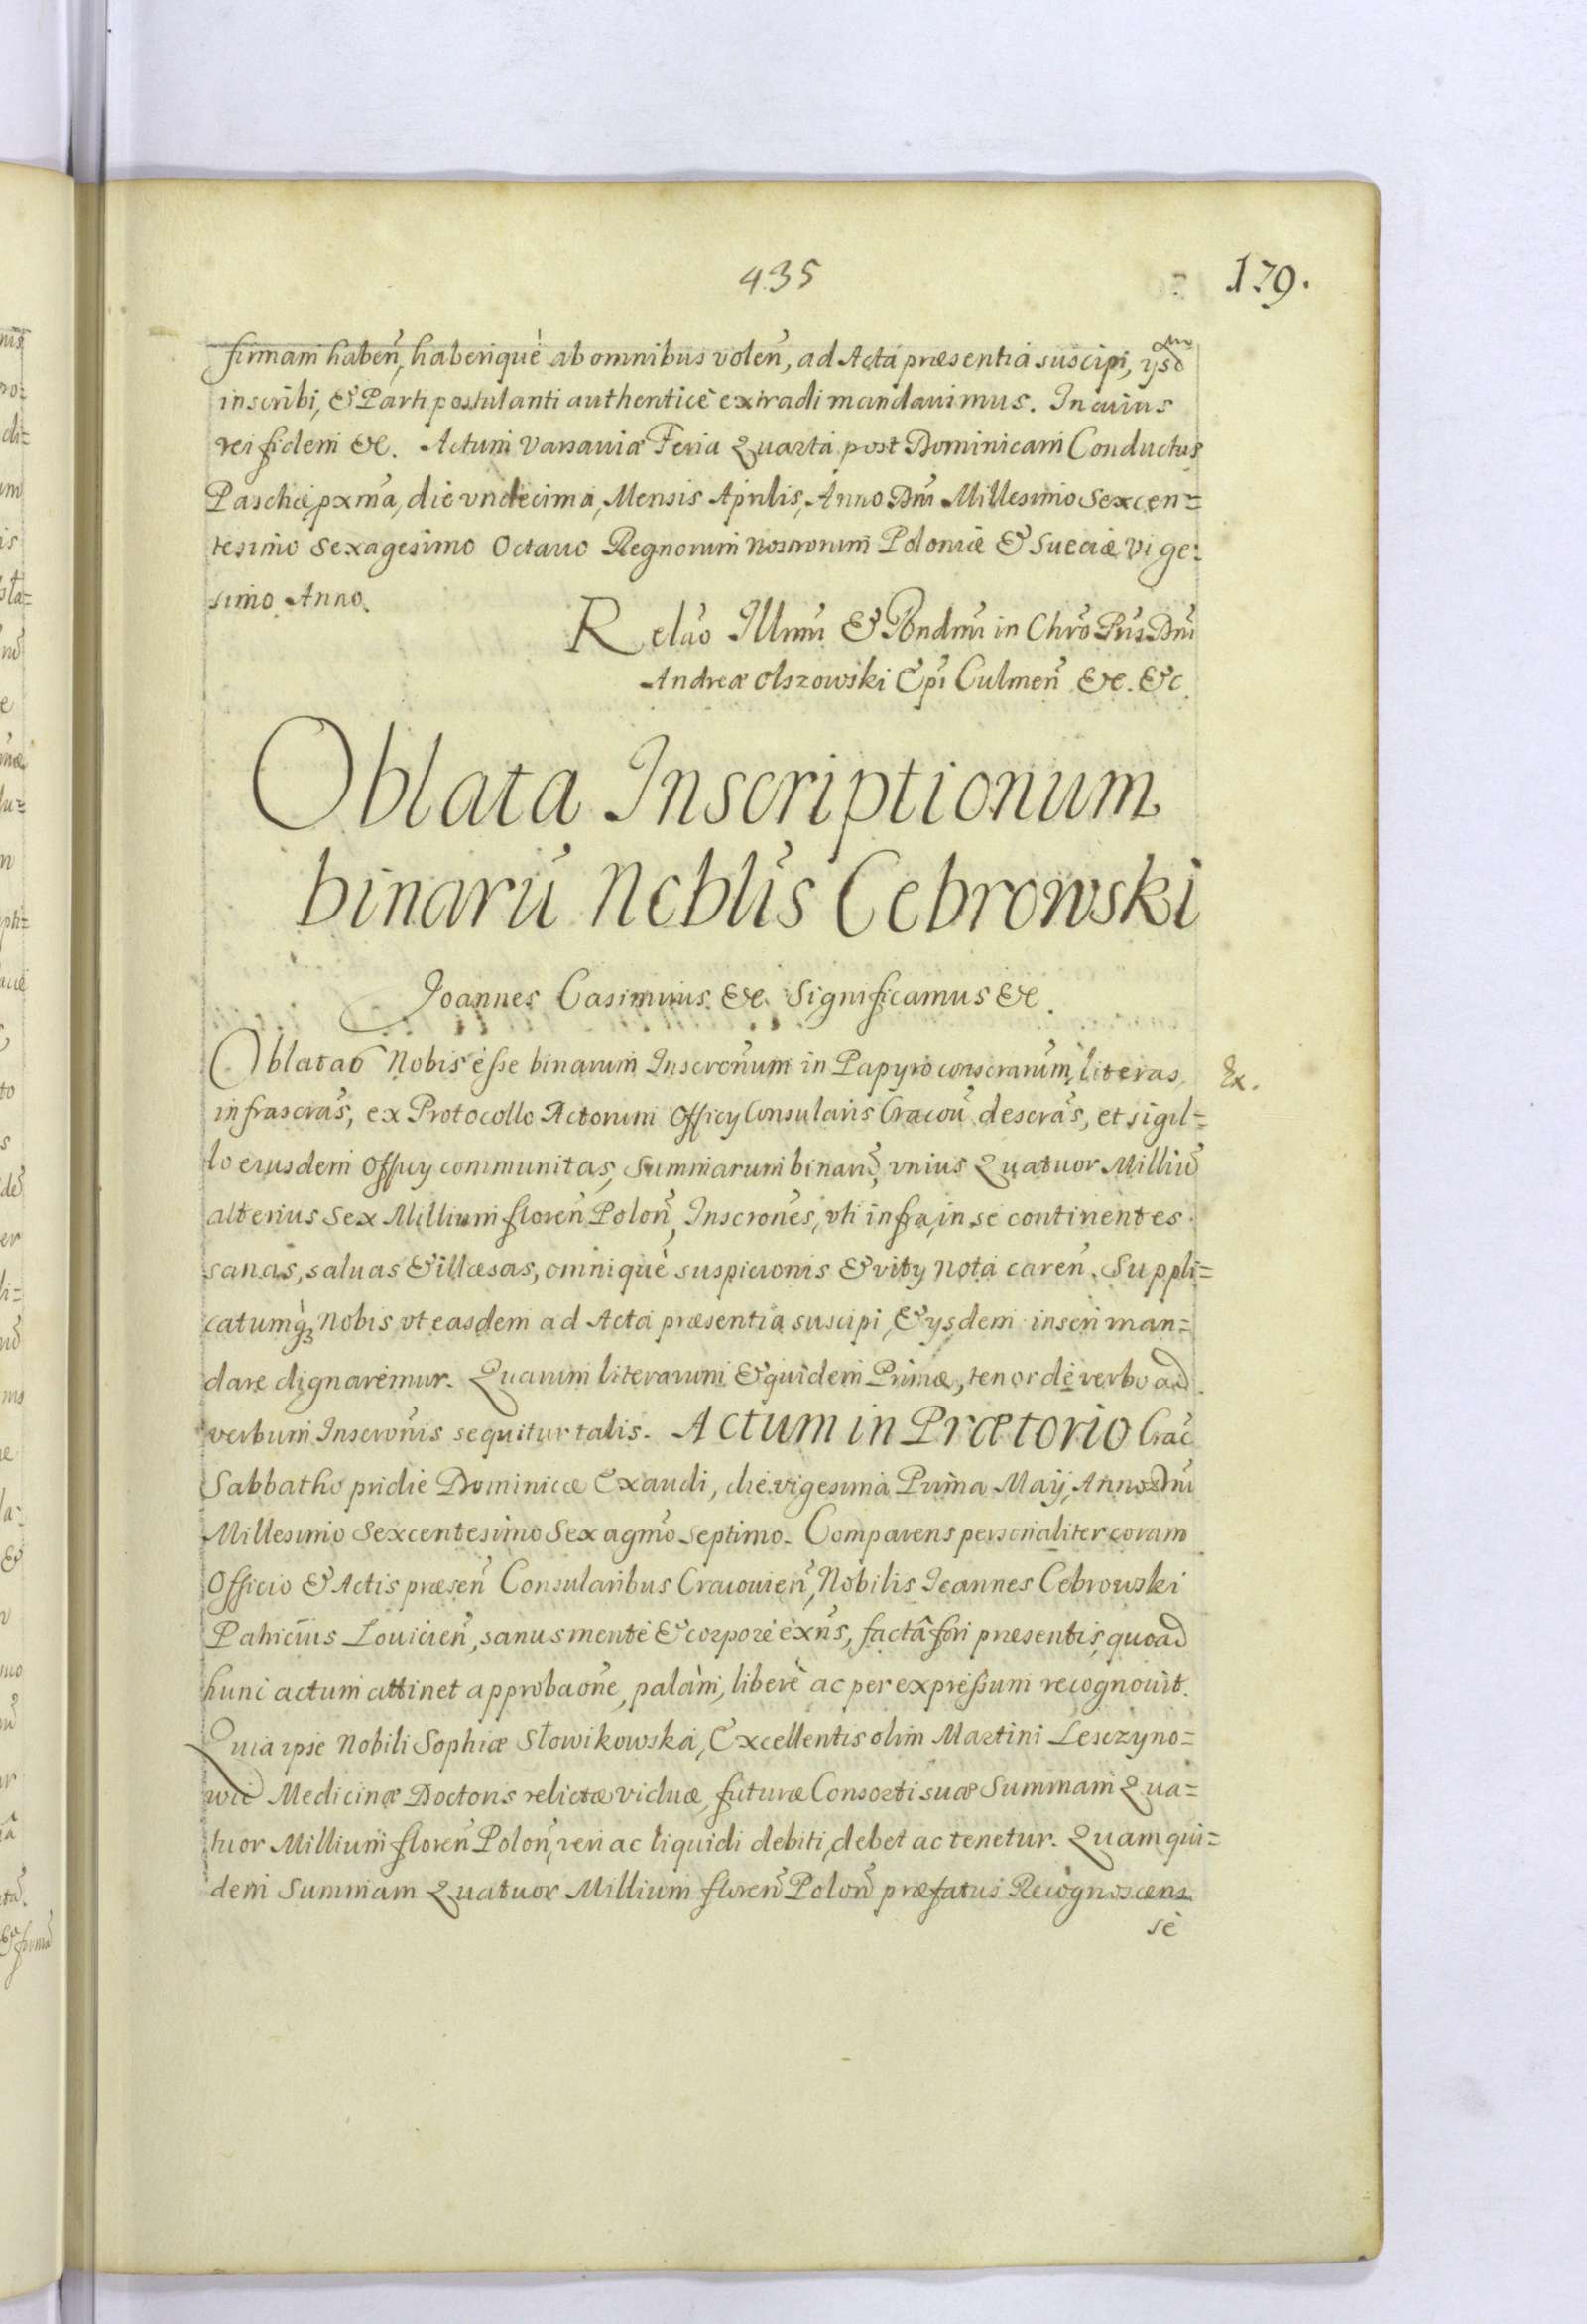 435
179.
firmam haben̄, haberiquè ab omnibus volen̄, ad Acta præsentia suscipi, ysd
inscribi, & Parti postulanti authenticè extradi mandauimus. In cuius
rei fidem &c. Actum Varsauiæ Feria Quarta post Dominicam Conductus
Paschæ pxm̃a, die vndecima, Mensis Aprilis, Anno Dn̄i Millesimo Sexcen=
tesimo Sexagesimo Octauo Regnorum nostrorum Poloniæ & Sueciæ Vige=
simo Anno.
Relāo Illm̄i & Rndm̄i in Chr̄o Pr̄is Dn̄i
Andreæ Olszowski Ep̄i Culmen̄ &c. &c.
Oblata Inscriptionum
binarū Noblis̄ Cebrowski
Joannes Casimirus &c. Significamus &c.
Oblatas Nobis esse binarum Inscron̄um in Papyro conscrarūm literas,
Ex.
infrascrās, ex Protocollo Actorum Officy Consularis Cracou̅ descrās, et sigil=
lo eiusdem Officy communitas, Summarum binarū, vnius Quatuor Milliū
alterius Sex Millium floren̄ Polon̄, Inscron̄es, vti infra, in se continentes.
sanas, saluas & illæsas, omniquè suspicionis & vity nota caren̄. Suppli=
catumq̀ȝ Nobis vt easdem ad Acta præsentia suscipi, & ysdem inseri man=
dare dignaremur. Quarum literarum & quidem Primæ, tenor de verbo ad
verbum Inscron̄is sequitur talis. Actum in Prætorio Crac̄
Sabbatho pridie Dominicæ Exaudi, die vigesima Prima Maÿ, Anno Dn̄i
Millesimo Sexcentesimo Sexagmō Septimo. Comparens personaliter coram
Officio & Actis præsen̄ Consularibus Cracouien̄, Nobilis Joannes Cebrowski
Patricius Louicien̄, sanus mente & corpore exn̄s, factâ fori præsentis, quoad
hunc actum attinet approbaōne, palàm, liberè ac per expressum recognouit.
Quia ipse Nobili Sophiæ Słowikowska, Excellentis olim Martini Lesczyno=
wic Medicinæ Doctoris relictæ viduæ, futuræ Consorti suæ Summam Qua=
tuor Millium floren̄ Polon̄, veri ac liquidi debiti, debet ac tenetur. Quam qui=
dem Summam Quatuor Millium floren̄ Polon̄ præfatus Recognoscens
se